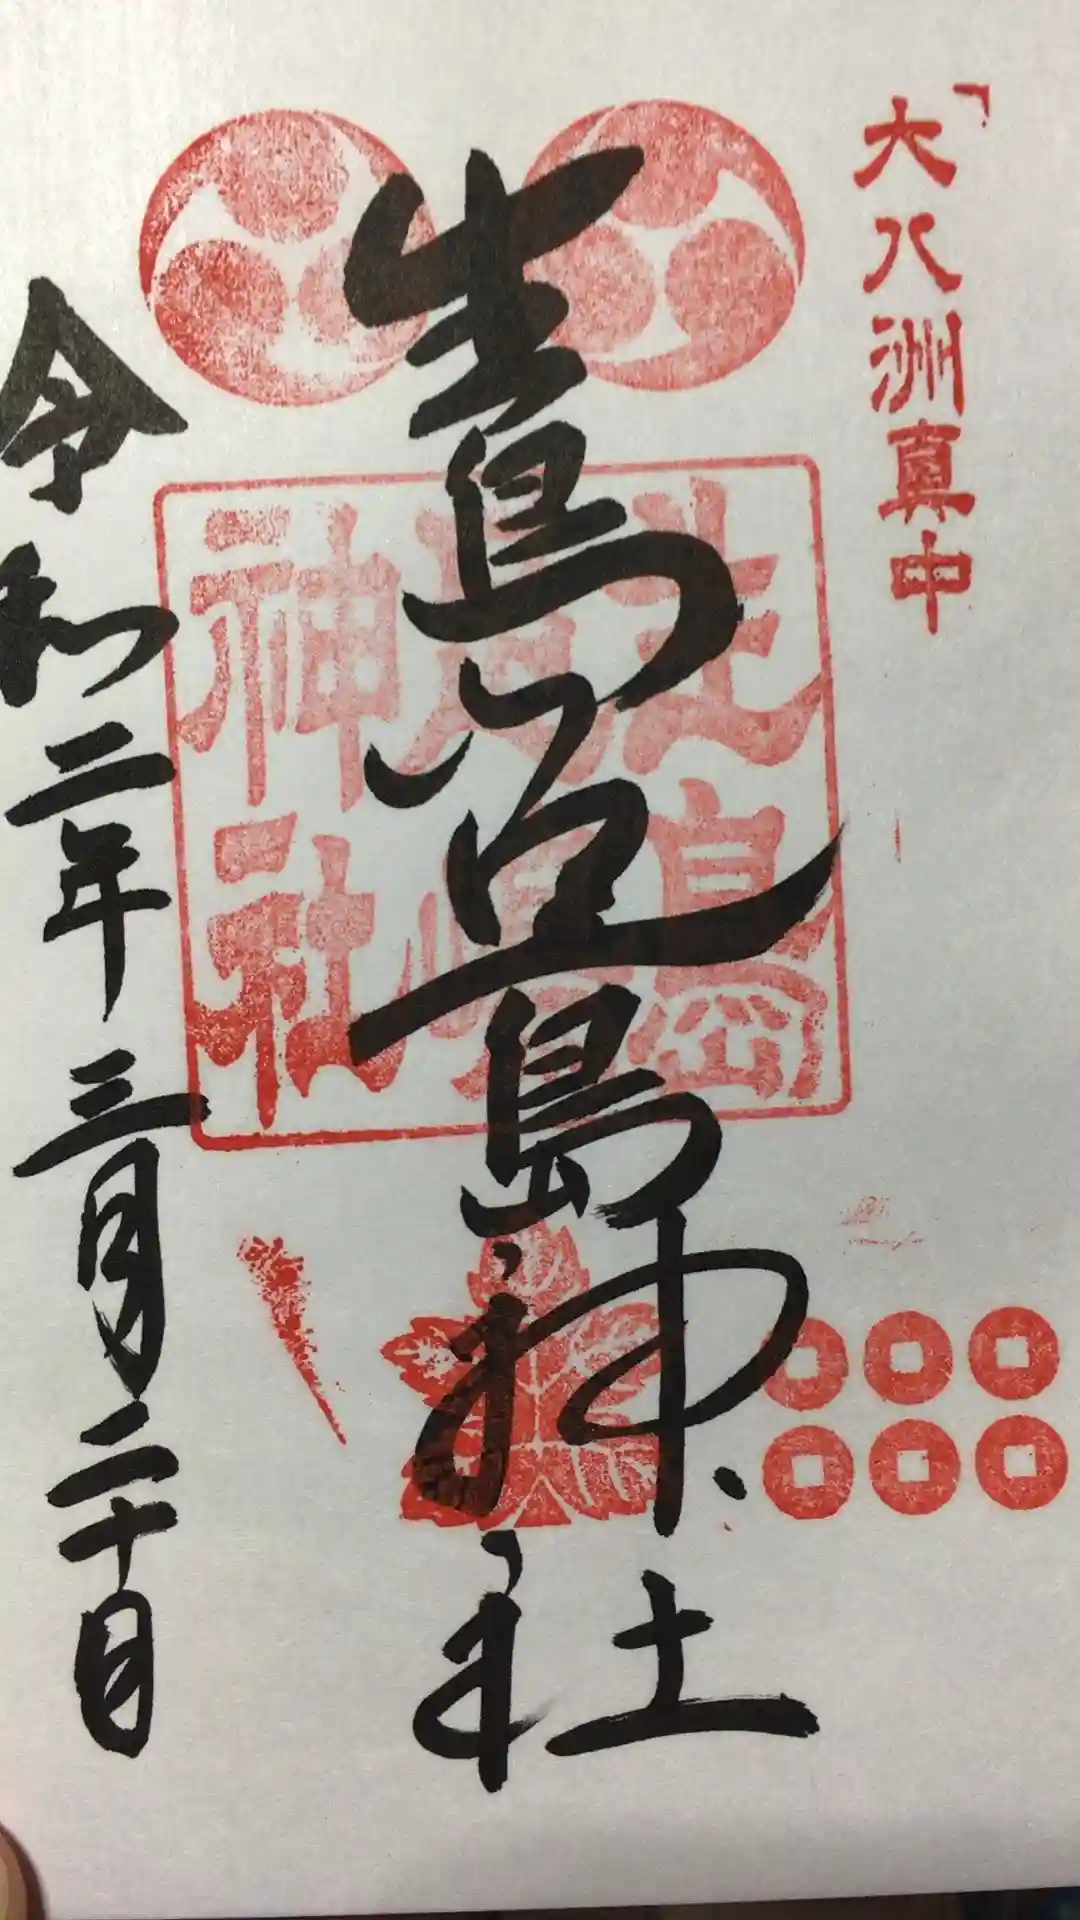 「大八洲真中
生島足島神社
生島足島神社
令和二年三月二十日